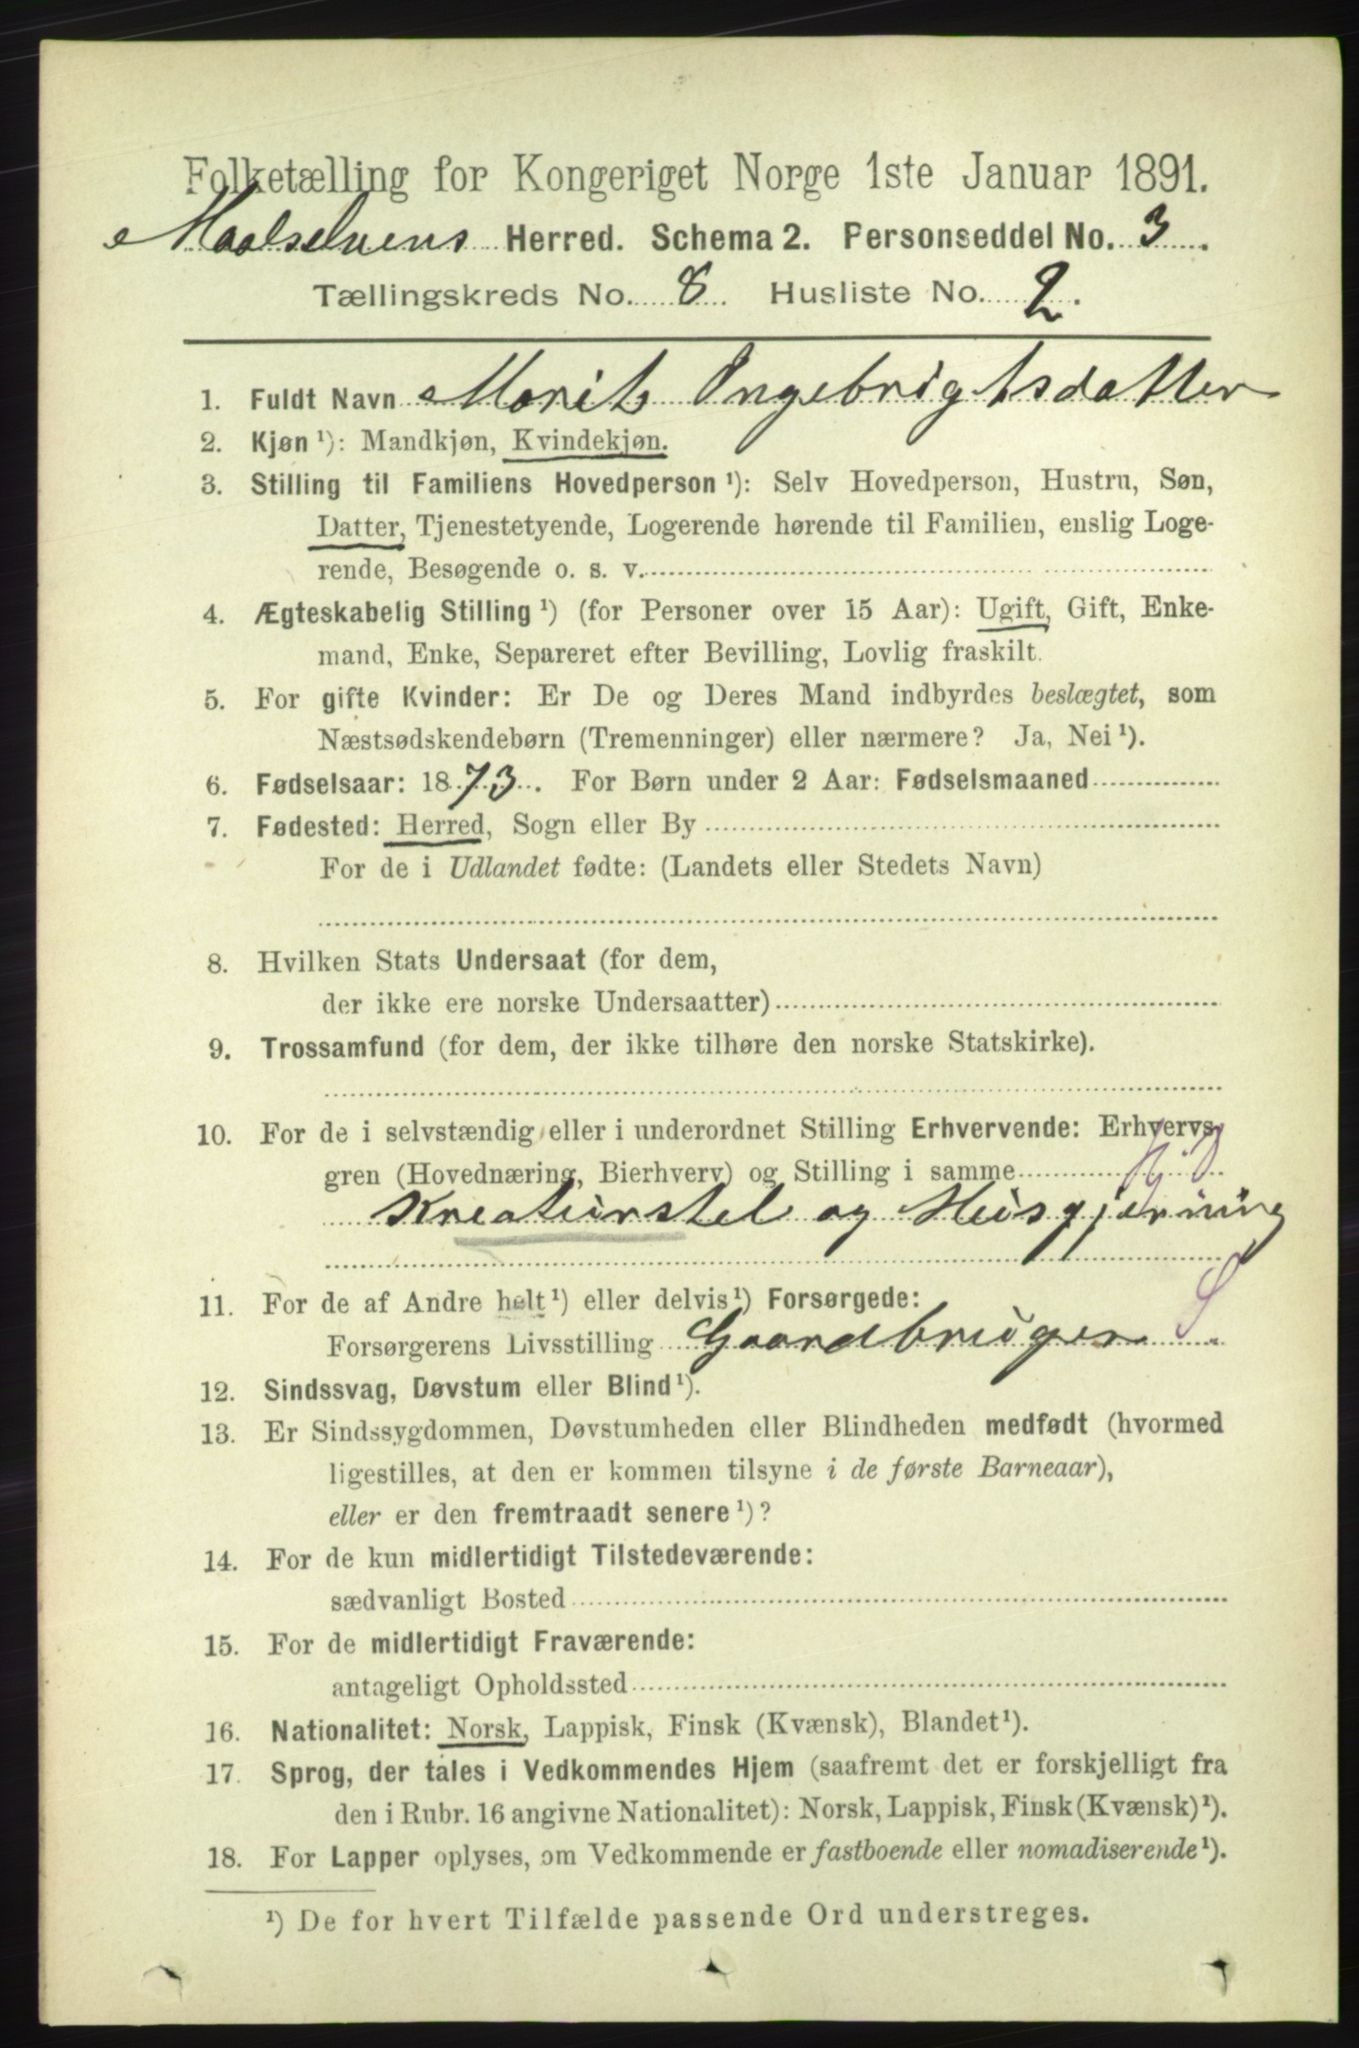 Folketælling for Kongeriget Norge 1ste Januar 1891.
Maalselvens Herred. Schema 2. Personseddel No. 3.
Tællingskreds No. 8 Husliste No. 2.
1. Fuldt Navn Marit Ingebrigtsdatter
2. Kjøn ¹): Mandkjøn, Kvindekjøn.
3. Stilling til Familiens Hovedperson ¹): Selv Hovedperson, Hustru, Søn,
Datter, Tjenestetyende, Logerende hørende til Familien, enslig Loge-
rende, Besøgende o. s. v.
4. Ægteskabelig Stilling ¹) (for Personer over 15 Aar): Ugift, Gift, Enke-
mand, Enke, Separeret efter Bevilling, Lovlig fraskilt.
5. For gifte Kvinder: Er De og Deres Mand indbyrdes beslægtet, som
Næstsødskendebørn (Tremenninger) eller nærmere? Ja, Nei ¹).
6. Fødselsaar: 1873. For Børn under 2 Aar: Fødselsmaaned
7. Fødested: Herred, Sogn eller By
For de i Udlandet fødte: (Landets eller Stedets Navn)
8. Hvilken Stats Undersaat (for dem,
der ikke ere norske Undersaatter)
9. Trossamfund (for dem, der ikke tilhøre den norske Statskirke).
10. For de i selvstændig eller i underordnet Stilling Erhvervende: Erhvervs-
gren (Hovednæring, Bierhverv) og Stilling i samme
Kreaturstel og Husgjerning
11. For de af Andre helt ¹) eller delvis ¹) Forsørgede:
Forsørgerens Livsstilling Gaardbruger S.
12. Sindssvag, Døvstum eller Blind ¹).
13. Er Sindssygdommen, Døvstumheden eller Blindheden medfødt (hvormed
ligestilles, at den er kommen tilsyne i de første Barneaar),
eller er den fremtraadt senere ¹)?
14. For de kun midlertidigt Tilstedeværende:
sædvanligt Bosted
15. For de midlertidigt Fraværende:
antageligt Opholdssted
16. Nationalitet: Norsk, Lappisk, Finsk (Kvænsk), Blandet ¹).
17. Sprog, der tales i Vedkommendes Hjem (saafremt det er forskjelligt fra
den i Rubr. 16 angivne Nationalitet): Norsk, Lappisk, Finsk (Kvænsk) ¹).
18. For Lapper oplyses, om Vedkommende er fastboende eller nomadiserende ¹).
¹) De for hvert Tilfælde passende Ord understreges.